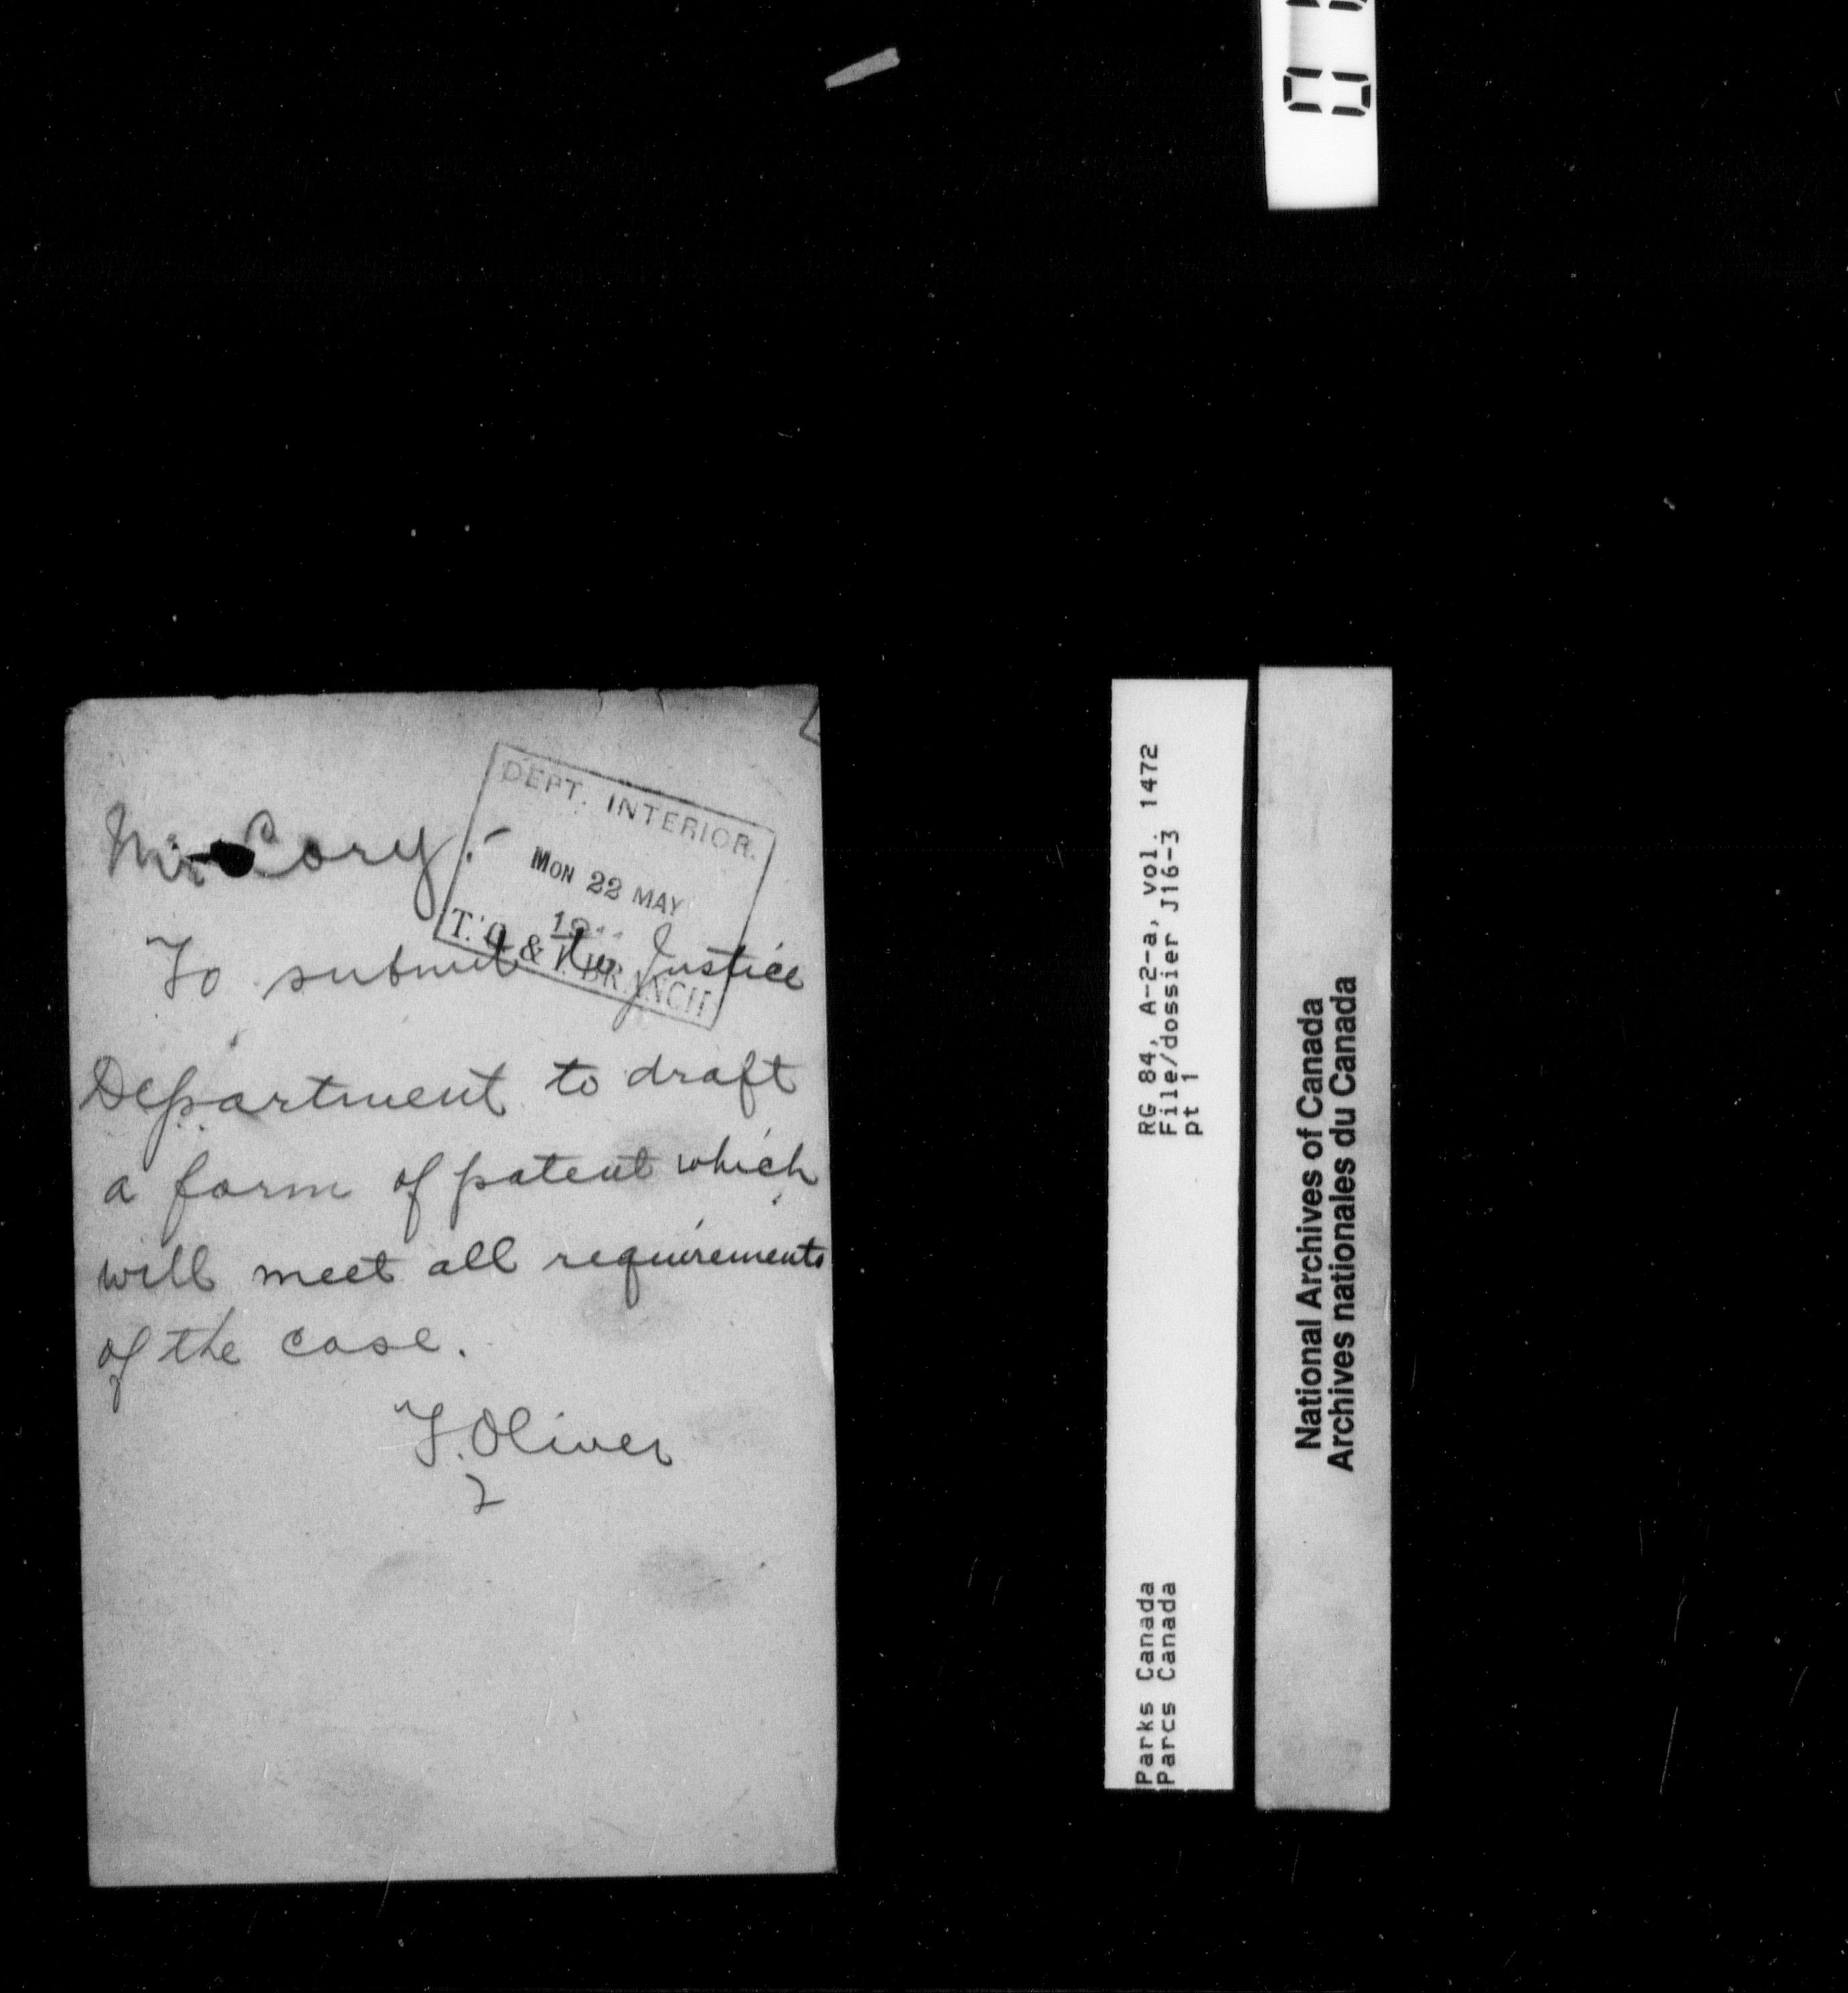 DEPT. INTERIOR.
MON 22 MAY
T. & BRANCH
Mr Cory:-
To submit to Justice
Department to draft
a form of patent which
will meet all requirements
of the case.
F. Oliver
RG 84, A-2-a, vol. 1472
File/dossier J16-3
pt 1
Parks Canada
Parcs Canada
National Archives of Canada
Archives nationales du Canada